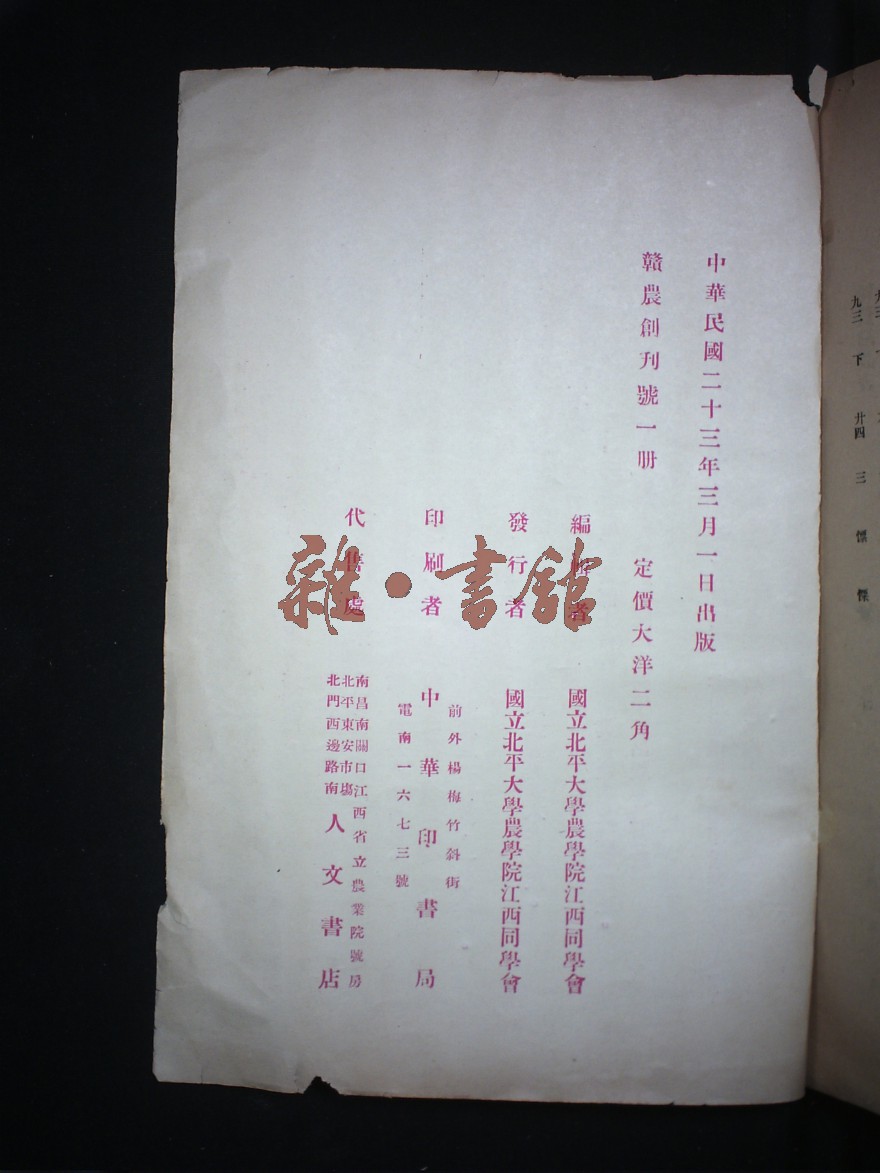 中華民國二十三年三月一日出版
贛農創刊號一册　定價大洋二角
編輯者　國立北平大學農學院江西同學會
發行者　國立北平大學農學院江西同學會
印刷者　中華印書局
前外楊梅竹斜街
電南一六七三號
代售處
南昌南關口江西省立農業院號房
北平東安市場
北門西邊路南
人文書店
雜·書館
九三　下　廿四　三　慓　慄